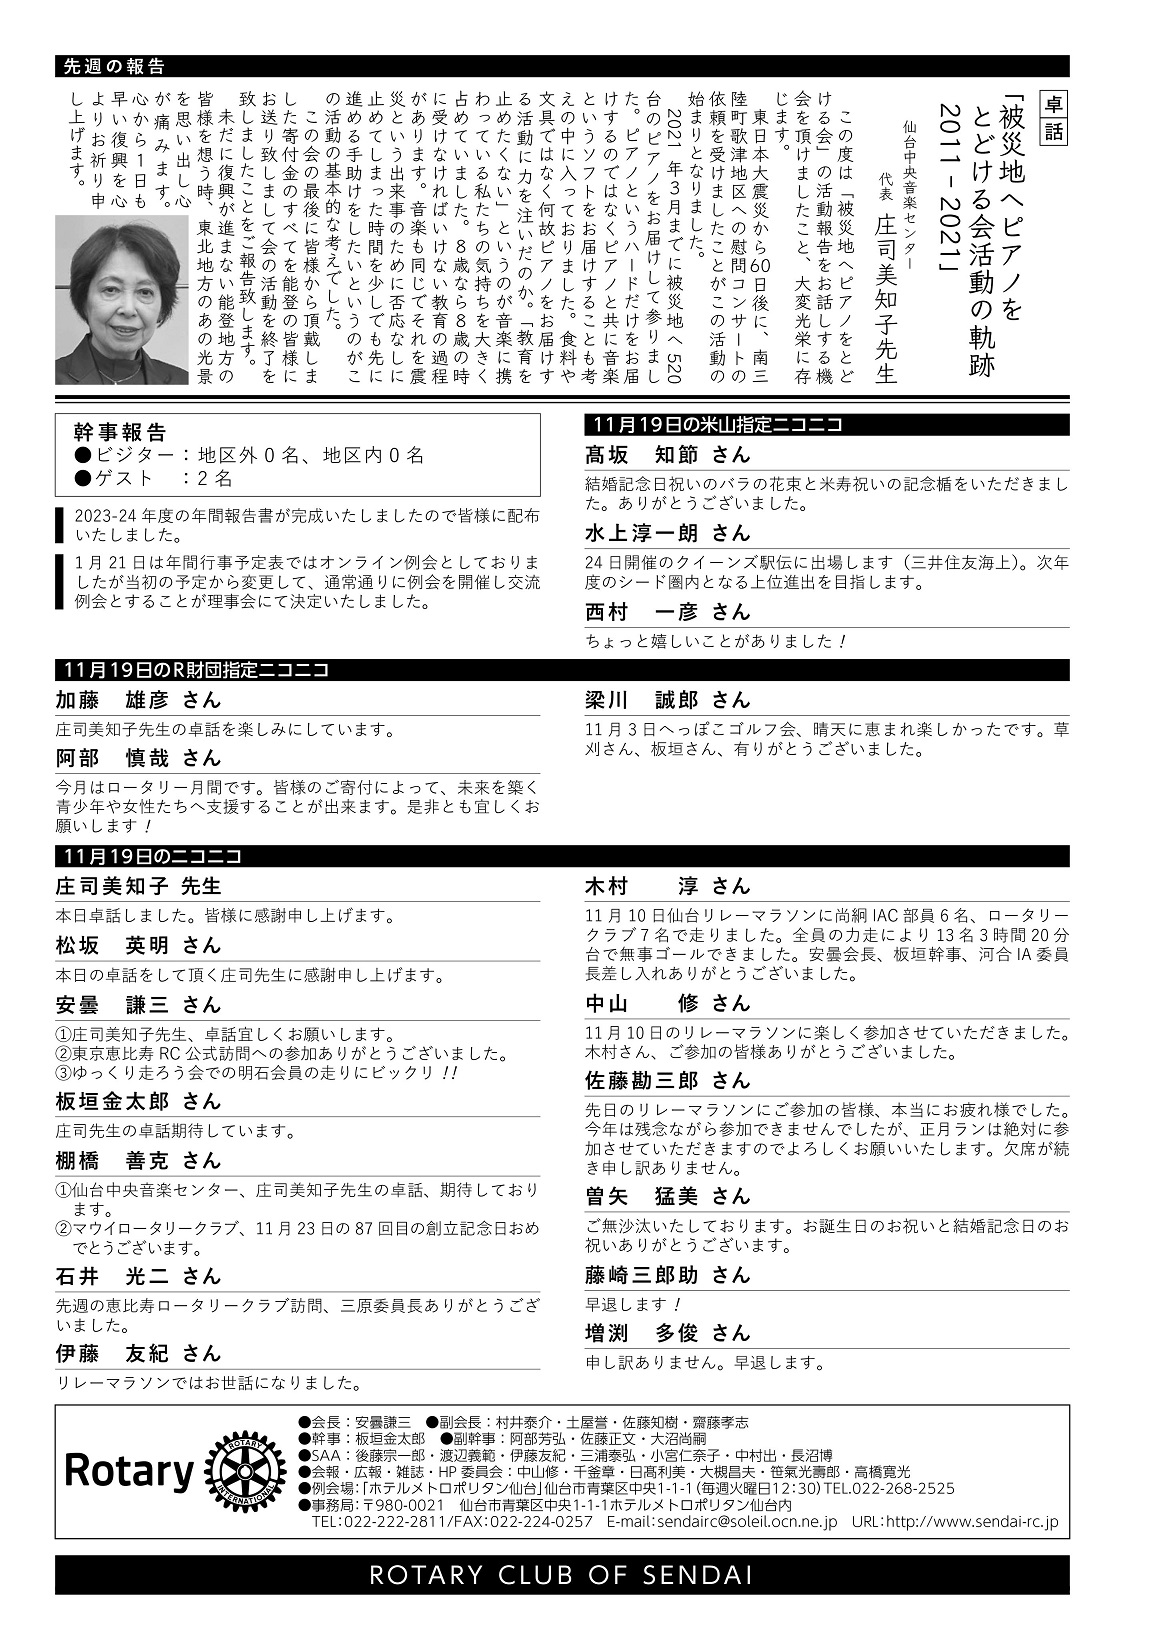 先週の報告
卓話
「被災地へピアノを
とどける会活動の軌跡
2011－2021」
仙台中央音楽センター
代表　庄司美知子先生
この度は「被災地へピアノをとど
ける会」の活動報告をお話しする機
会を頂けましたこと、大変光栄に存
じます。
東日本大震災から60日後に、南三
陸町歌津地区への慰問コンサートの
依頼を受けましたことがこの活動の
始まりとなりました。
2021年３月までに被災地へ520
台のピアノをお届けして参りまし
た。ピアノというハードだけをお届
けするのではなくピアノと共に音楽
というソフトをお届けすることも考
えの中に入っておりました。食料や
文具ではなく何故ピアノをお届けす
る活動に力を注いだのか。「教育を
止めたくない」というのが音楽に携
わっている私たちの気持ちを大きく
占めていました。８歳なら８歳の時
に受けなければいけない教育の過程
があります。音楽も同じでそれを震
災という出来事のために否応なしに
止めてしまった時間を少しでも先に
進める手助けをしたいというのがこ
の活動の基本的な考えでした。
この会の最後に皆様から頂戴しま
した寄付金のすべてを能登の皆様に
お送り致しまして会の活動を終了を
致しましたことをご報告致します。
未だに復興が進まない能登地方の
皆様を想う時、東北地方のあの光景
を思い出し心
が痛みます。
心から１日も
早い復興を心
よりお祈り申
し上げます。
幹事報告
●ビジター：地区外０名、地区内０名
●ゲスト　：2 名
2023-24 年度の年間報告書が完成いたしましたので皆様に配布
いたしました。
１月 21 日は年間行事予定表ではオンライン例会としておりま
したが当初の予定から変更して、通常通りに例会を開催し交流
例会とすることが理事会にて決定いたしました。
11月19日の米山指定ニコニコ
髙坂　知節 さん
結婚記念日祝いのバラの花束と米寿祝いの記念楯をいただきまし
た。ありがとうございました。
水上淳一朗 さん
24 日開催のクイーンズ駅伝に出場します（三井住友海上）。次年
度のシード圏内となる上位進出を目指します。
西村　一彦 さん
ちょっと嬉しいことがありました！
11月19日のR財団指定ニコニコ
加藤　雄彦 さん
庄司美知子先生の卓話を楽しみにしています。
阿部　慎哉 さん
今月はロータリー月間です。皆様のご寄付によって、未来を築く
青少年や女性たちへ支援することが出来ます。是非とも宜しくお
願いします！
梁川　誠郎 さん
11 月３日へっぽこゴルフ会、晴天に恵まれ楽しかったです。草
刈さん、板垣さん、有りがとうございました。
11月19日のニコニコ
庄司美知子 先生
本日卓話しました。皆様に感謝申し上げます。
松坂　英明 さん
本日の卓話をして頂く庄司先生に感謝申し上げます。
安曇　謙三 さん
①庄司美知子先生、卓話宜しくお願いします。
②東京恵比寿 RC 公式訪問への参加ありがとうございました。
③ゆっくり走ろう会での明石会員の走りにビックリ!!
板垣金太郎 さん
庄司先生の卓話期待しています。
棚橋　善克 さん
①仙台中央音楽センター、庄司美知子先生の卓話、期待しており
ます。
②マウイロータリークラブ、11 月 23 日の 87 回目の創立記念日おめ
でとうございます。
石井　光二 さん
先週の恵比寿ロータリークラブ訪問、三原委員長ありがとうござ
いました。
伊藤　友紀 さん
リレーマラソンではお世話になりました。
木村　　淳 さん
11 月 10 日仙台リレーマラソンに尚絅 IAC 部員６名、ロータリー
クラブ７名で走りました。全員の力走により 13 名３時間 20 分
台で無事ゴールできました。安曇会長、板垣幹事、河合 IA 委員
長差し入れありがとうございました。
中山　　修 さん
11 月 10 日のリレーマラソンに楽しく参加させていただきました。
木村さん、ご参加の皆様ありがとうございました。
佐藤勘三郎 さん
先日のリレーマラソンにご参加の皆様、本当にお疲れ様でした。
今年は残念ながら参加できませんでしたが、正月ランは絶対に参
加させていただきますのでよろしくお願いいたします。欠席が続
き申し訳ありません。
曽矢　猛美 さん
ご無沙汰いたしております。お誕生日のお祝いと結婚記念日のお
祝いありがとうございます。
藤崎三郎助 さん
早退します！
増渕　多俊 さん
申し訳ありません。早退します。
Rotary
ROTARY INTERNATIONAL
●会長：安曇謙三　●副会長：村井泰介・土屋誉・佐藤知樹・齋藤孝志
●幹事：板垣金太郎　●副幹事：阿部芳弘・佐藤正文・大沼尚嗣
●SAA：後藤宗一郎・渡辺義範・伊藤友紀・三浦泰弘・小宮仁奈子・中村出・長沼博
●会報・広報・雑誌・HP 委員会：中山修・千釜章・日髙利美・大槻昌夫・笹氣光壽郎・高橋寛光
●例会場：「ホテルメトロポリタン仙台」仙台市青葉区中央1-1-1（毎週火曜日12：30）TEL.022-268-2525
●事務局：〒980-0021　仙台市青葉区中央1-1-1ホテルメトロポリタン仙台内
TEL：022-222-2811/FAX：022-224-0257　E-mail：sendairc@soleil.ocn.ne.jp　URL：http://www.sendai-rc.jp
ROTARY CLUB OF SENDAI